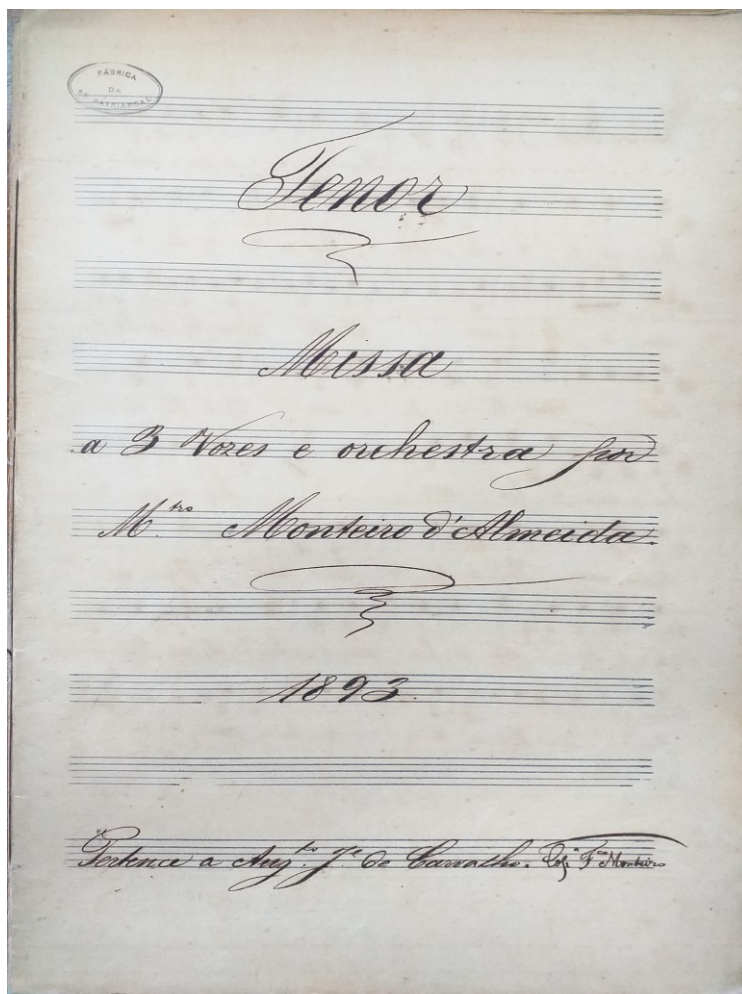 FÁBRICA
DA
SÉ PATRIARCAL
Tenor
Missa
a 3 Vozes e orchestra por
M.tro Monteiro d'Almeida.
1893.
Pertence a Aug.to J.e de Carvalho. F.co Monteiro